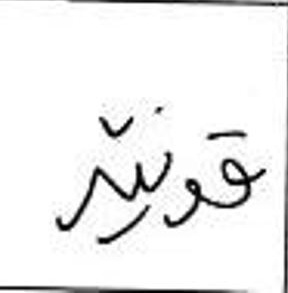 قونێر